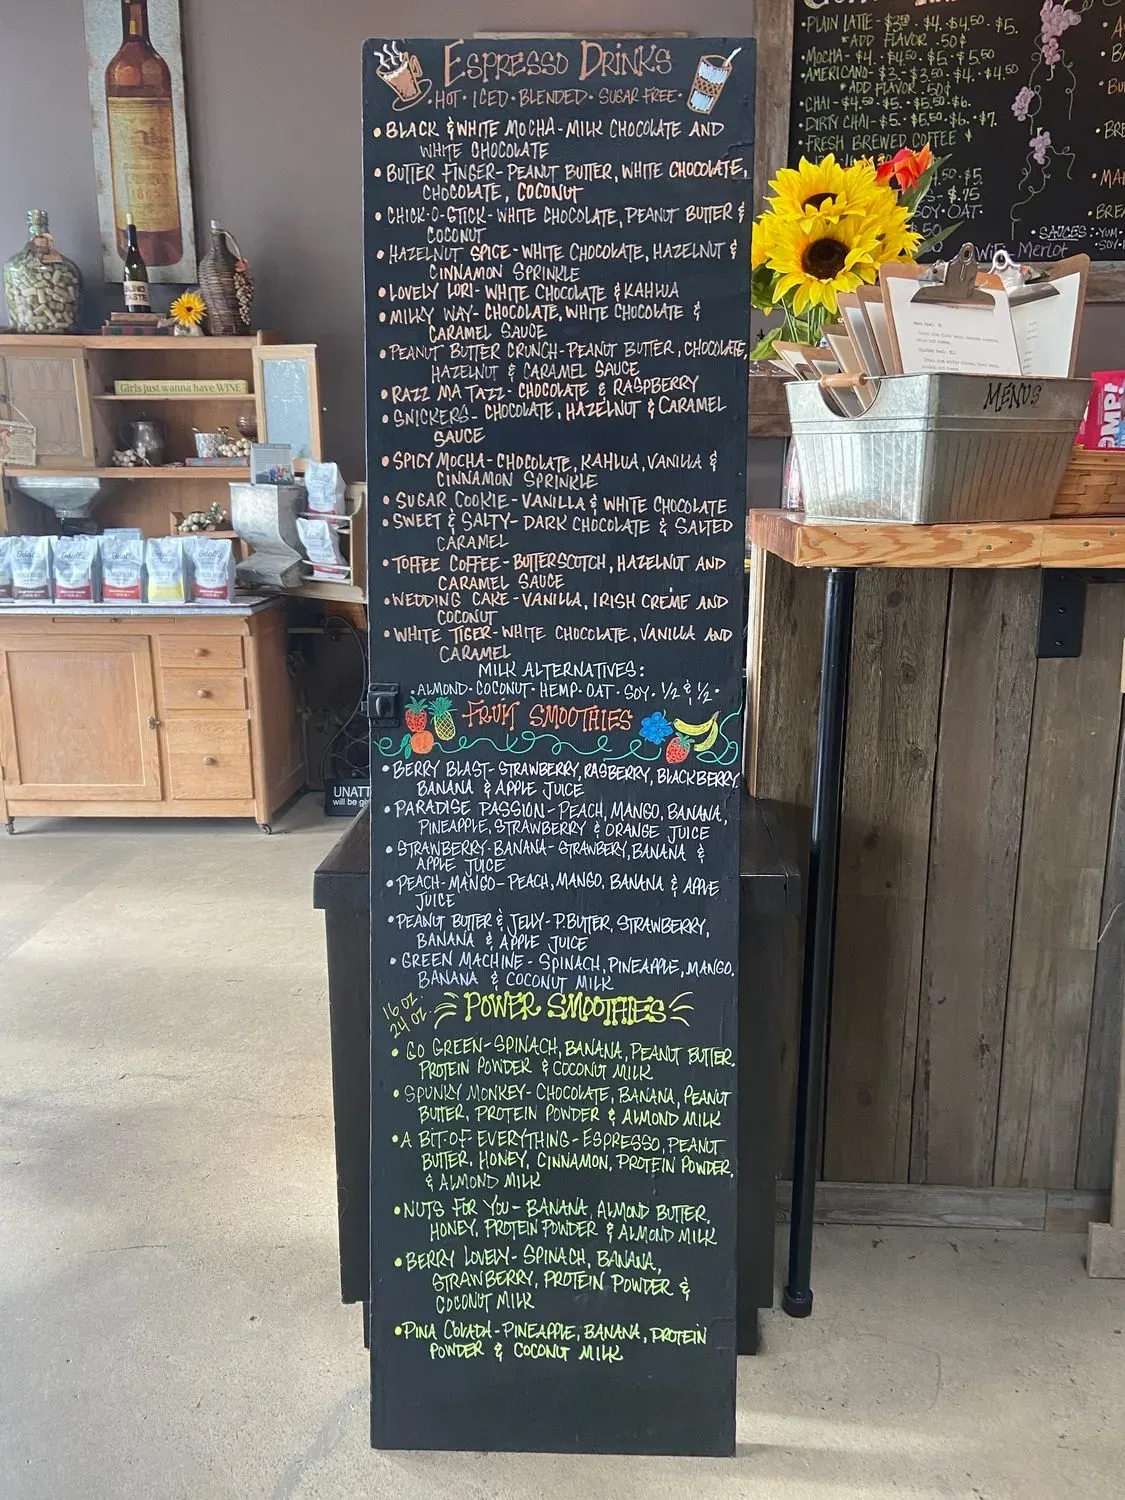 Espresso Drinks
·HOT·ICED·BLENDED·SUGAR FREE·
•BLACK & WHITE MOCHA-MILK CHOCOLATE AND
WHITE CHOCOLATE
•BUTTER FINGER-PEANUT BUTTER, WHITE CHOCOLATE,
CHOCOLATE, COCONUT
•CHICK-O-STICK-WHITE CHOCOLATE, PEANUT BUTTER &
COCONUT
•HAZELNUT SPICE-WHITE CHOCOLATE, HAZELNUT &
CINNAMON SPRINKLE
•LOVELY LORI-WHITE CHOCOLATE & KAHLUA
•MILKY WAY-CHOCOLATE, WHITE CHOCOLATE &
CARAMEL SAUCE
•PEANUT BUTTER CRUNCH-PEANUT BUTTER, CHOCOLATE,
HAZELNUT & CARAMEL SAUCE
•RAZZ MA TAZZ-CHOCOLATE & RASPBERRY
•SNICKERS-CHOCOLATE, HAZELNUT & CARAMEL
SAUCE
•SPICY MOCHA-CHOCOLATE, KAHLUA, VANILLA &
CINNAMON SPRINKLE
•SUGAR COOKIE-VANILLA & WHITE CHOCOLATE
•SWEET & SALTY-DARK CHOCOLATE & SALTED
CARAMEL
•TOFFEE COFFEE-BUTTERSCOTCH, HAZELNUT AND
CARAMEL SAUCE
•WEDDING CAKE-VANILLA, IRISH CRÈME AND
COCONUT
•WHITE TIGER-WHITE CHOCOLATE, VANILLA AND
CARAMEL
MILK ALTERNATIVES:
·ALMOND·COCONUT·HEMP·OAT·SOY·1/2 & 1/2·
FRUIT SMOOTHIES
•BERRY BLAST-STRAWBERRY, RASBERRY, BLACKBERRY,
BANANA & APPLE JUICE
•PARADISE PASSION-PEACH, MANGO, BANANA,
PINEAPPLE, STRAWBERRY & ORANGE JUICE
•STRAWBERRY-BANANA-STRAWBERY, BANANA &
APPLE JUICE
•PEACH-MANGO-PEACH, MANGO, BANANA & APPLE
JUICE
•PEANUT BUTTER & JELLY-P.BUTTER, STRAWBERRY,
BANANA & APPLE JUICE
•GREEN MACHINE-SPINACH, PINEAPPLE, MANGO,
BANANA & COCONUT MILK
16 OZ.
24 OZ.
POWER SMOOTHIES
•GO GREEN-SPINACH, BANANA, PEANUT BUTTER,
PROTEIN POWDER & COCONUT MILK
•SPUNKY MONKEY-CHOCOLATE, BANANA, PEANUT
BUTTER, PROTEIN POWDER & ALMOND MILK
•A BIT-OF-EVERYTHING-ESPRESSO, PEANUT
BUTTER, HONEY, CINNAMON, PROTEIN POWDER,
& ALMOND MILK
•NUTS FOR YOU-BANANA, ALMOND BUTTER,
HONEY, PROTEIN POWDER & ALMOND MILK
•BERRY LOVELY-SPINACH, BANANA,
STRAWBERRY, PROTEIN POWDER &
COCONUT MILK
•PINA COLADA-PINEAPPLE, BANANA, PROTEIN
POWDER & COCONUT MILK
•PLAIN LATTE-$3.50·$4.·$4.50·$5.
*ADD FLAVOR .50¢
•MOCHA-$4.·$4.50·$5.·$5.50
•AMERICANO-$3.·$3.50·$4.·$4.50
*ADD FLAVOR .50¢
•CHAI-$4.50·$5.·$5.50·$6.
•DIRTY CHAI-$5.·$5.50·$6.·$7.
•FRESH BREWED COFFEE
4.50·$5.
$.75
SOY·OAT·
•SAUCES:
Merlot
MENUS
Girls just wanna have WINE
BLIND
TASTE
UNATT
will be gi